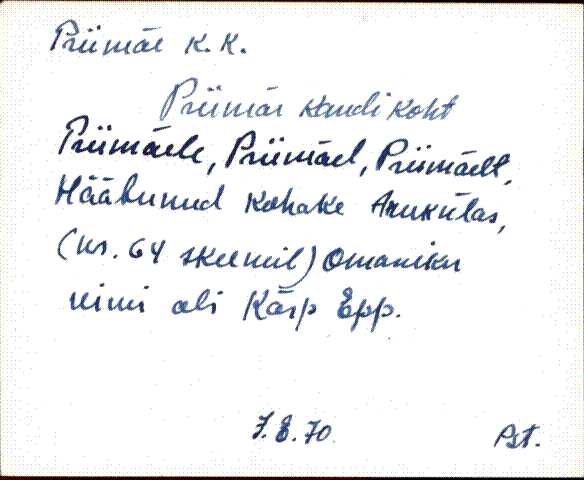 Priimäe K.K.
Priimäe kandikoht
Priimäele, Priimäel, Priimäelt,
Hääbunud kohake Arukülas,
(nr. 64 skeemil) Omaniku
nimi oli Kärp Epp.
7.8.70. Pst.